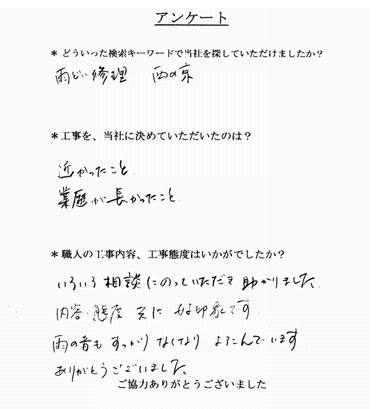 アンケート
* どういった検索キーワードで当社を探していただけましたか?
雨どい修理 西の京
* 工事を、当社に決めていただいたのは?
近かったこと
業歴が長かったこと
* 職人の工事内容、工事態度はいかがでしたか?
いろいろ相談にのっていただき助かりました。
内容・態度 共に 好印象です
雨の音もすっかりなくなり よろこんでいます
ありがとうございました。
ご協力ありがとうございました